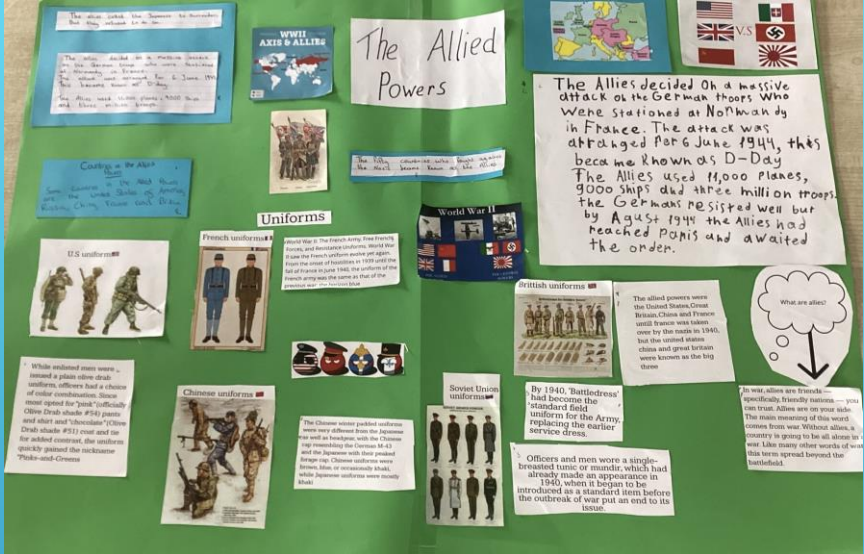 The allies asked the Japanese to surrender
But they refused to do so.
The allies decided on a massive attack
on the German troops who were stationed
at Normandy in France.
The attack was arranged for 6 June 1944
this became known as D-day.
The Allies used 11,000 planes, 9000 ships
and three million troops.
Countries in the Allied
Powers
Some Countries in the Allied Powers
are the United States of America,
Russia, China, France and
WWII
AXIS & ALLIES
The Allied
Powers
The fifty countries who fought against
the Nazis became known as the Allies
V.S
The Allies decided on a massive
attack on the German troops who
were stationed at Normandy
in France. The attack was
arranged for 6 June 1944, this
became known as D-Day
The Allies used 11,000 planes,
9000 ships and three million troops.
the Germans resisted well but
by Agust 1944 the Allies had
reached Paris and awaited
the order.
Uniforms
U.S uniforms
French uniforms
World War II. The French Army, Free French
Forces, and Resistance Uniforms. World War
II saw the French uniform evolve yet again.
From the onset of hostilities in 1939 until the
fall of France in June 1940, the uniform of the
French army was the same as that of the
previous war: the horizon blue
World War II
Brittish uniforms
The allied powers were
the United States, Great
Britain, China and France
until france was taken
over by the nazis in 1940,
but the united states
china and great britain
were known as the big
three
What are allies?
While enlisted men were
issued a plain olive drab
uniform, officers had a choice
of color combination. Since
most opted for "pink" (officially
Olive Drab shade #54) pants
and shirt and "chocolate" (Olive
Drab shade #51) coat and tie
for added contrast, the uniform
quickly gained the nickname
"Pinks-and-Greens
Chinese uniforms
The Chinese winter padded uniforms
were very different from the Japanese
as well as headgear, with the Chinese
cap resembling the German M-43
and the Japanese with their peaked
forage cap. Chinese uniforms were
brown, blue, or occasionally khaki,
while Japanese uniforms were mostly
khaki
Soviet Union
uniforms
By 1940, 'Battledress' had
become the 'standard field
uniform for the Army,
replacing the earlier
service dress.
Officers and men wore a single-
breasted tunic or mundir, which had
already made an appearance in
1940, when it began to be
introduced as a standard item before
the outbreak of war put an end to its
issue.
In war, allies are friends —
specifically, friendly nations — you
can trust. Allies are on your side.
The main meaning of this word
comes from war. Without allies, a
country is going to be all alone in a
war. Like many other words of war
this term spread beyond the
battlefield.